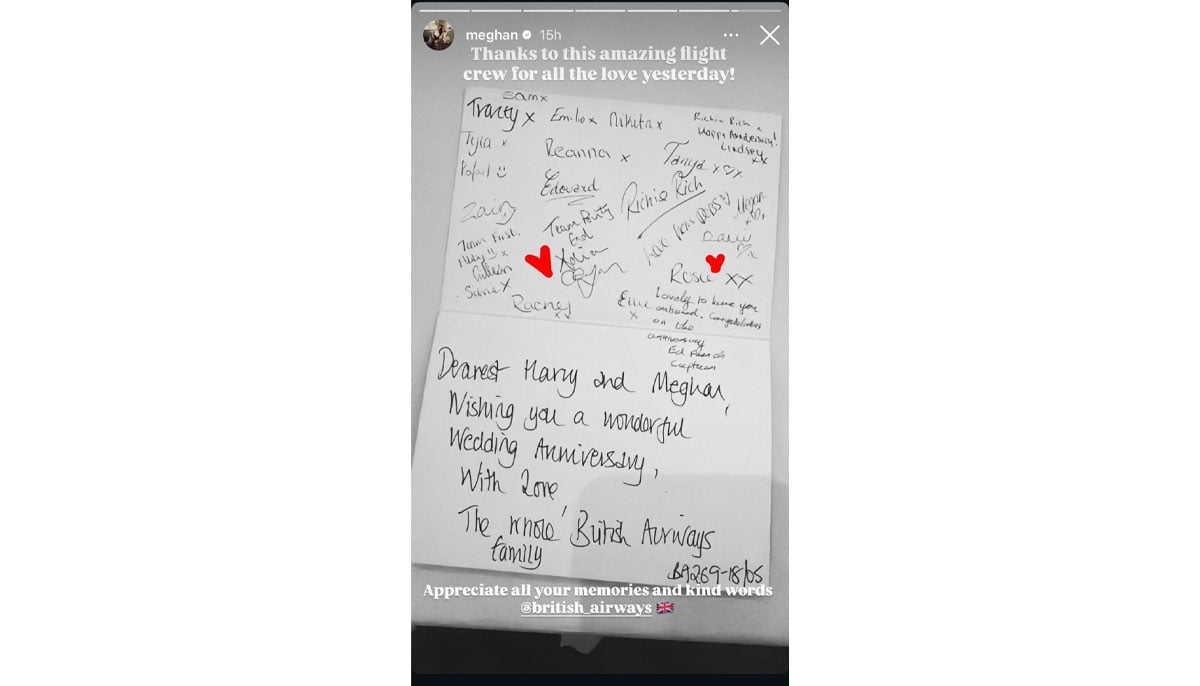 meghan 15h
Thanks to this amazing flight
crew for all the love yesterday!
Sam x
Tracey x Emilio x Nikita x
Richie Rich x
Happy Anniversary!
Lindsey xx
Tyra x
Reanna x
Tanya x♡x
Rafael :)
Edouard
Richie Rich
Megan
Zain
Team Party
End
Love from
Team First.
Gillian
Rosie xx
Lovely to have you
onboard. Congratulations
on the
anniversary
Ed
Captain
Dearest Harry and Meghan,
Wishing you a wonderful
Wedding Anniversary,
With Love
The whole British Airways
family
BA269-18/05
Appreciate all your memories and kind words
@british_airways 🇬🇧